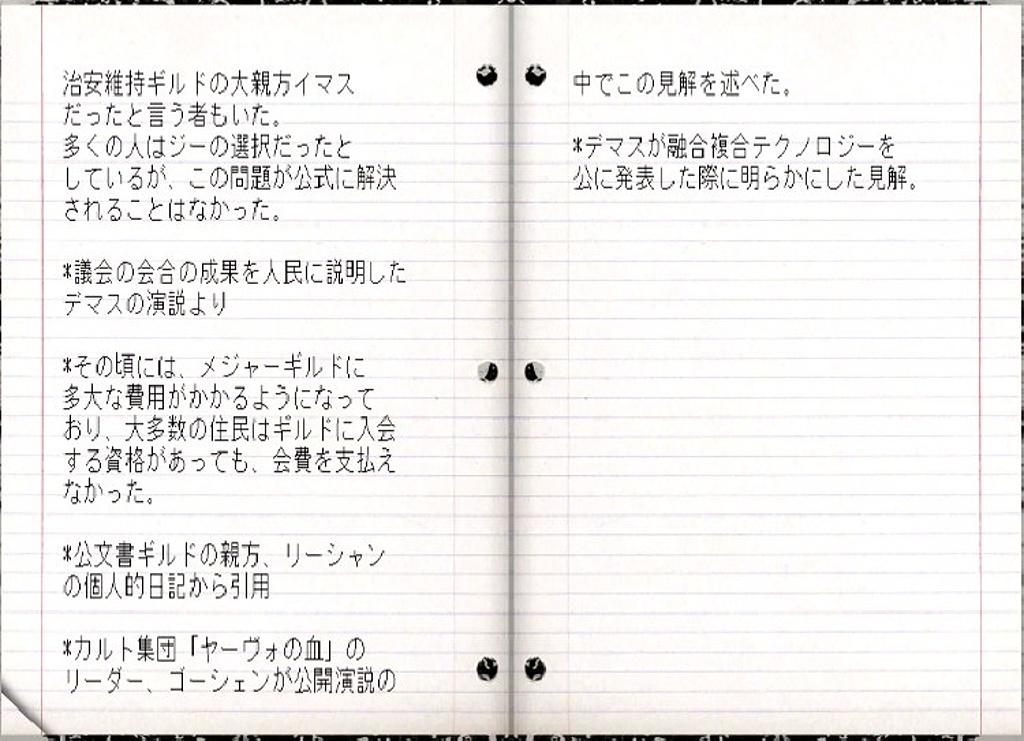 治安維持ギルドの大親方イマス
だったと言う者もいた。
多くの人はジーの選択だったと
しているが、この問題が公式に解決
されることはなかった。
*議会の会合の成果を人民に説明した
デマスの演説より
*その頃には、メジャーギルドに
多大な費用がかかるようになって
おり、大多数の住民はギルドに入会
する資格があっても、会費を支払え
なかった。
*公文書ギルドの親方、リーシャン
の個人的日記から引用
*カルト集団「ヤーヴォの血」の
リーダー、ゴーシェンが公開演説の
中でこの見解を述べた。
*デマスが融合複合テクノロジーを
公に発表した際に明らかにした見解。